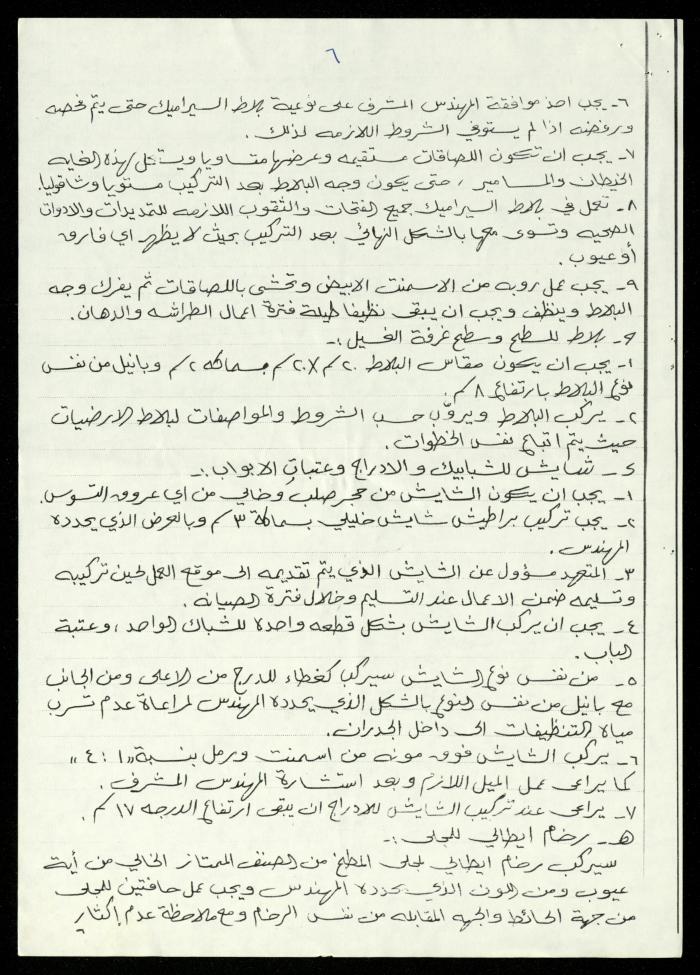 ٦
٦- يجب اخذ موافقة المهندس المشرف على نوعية بلاط السيراميك حتى يتم فحصه
ورفضه اذا لم يستوفي الشروط اللازمه لذلك .
٧- يجب ان تكون اللصاقات مستقيمه وعرضها متساويا ويستعمل لهذه الغايه
الخيطان والمسامير ، حتى يكون وجه البلاط بعد التركيب مستويا وشاقوليا.
٨- تعمل في بلاط السيراميك جميع الفتحات والثقوب اللازمه للتمديدات والادوات
الصحيه وتسوى معها بالشكل النهائي بعد التركيب بحيث لا يظهر اي فارق
أو عيوب .
٩- يجب عمل روبه من الاسمنت الابيض وتحشى باللصاقات ثم يفرك وجه
البلاط وينظف ويجب ان يبقى نظيفا طيلة فترة اعمال الطراشه والدهان.
بلاط للسطح وسطح غرفة الغسيل :-
١- يجب ان يكون مقاس البلاط ٢٠سم x ٢٠سم بسماكه ٢سم وبانيل من نفس
نوع البلاط بارتفاع ٨سم.
٢- يركب البلاط ويروّب حسب الشروط والمواصفات لبلاط الارضيات
حيث يتم اتباع نفس الخطوات.
شايش للشبابيك والادراج وعتبات الابواب :-
١- يجب ان يكون الشايش من حجر صلب وخالي من اي عروق التسوس.
٢- يجب تركيب براطيش شايش خليلي بسماكة ٣سم وبالعرض الذي يحدده
المهندس .
٣- المتعهد مسؤول عن الشايش الذي يتم تقديمه الى موقع العمل لحين تركيبه
وتسليمه ضمن الاعمال عند التسليم وخلال فترة الصيانه .
٤- يجب ان يركب الشايش بشكل قطعه واحدة للشباك الواحد ، وعتبة
الباب .
٥- من نفس نوع الشايش سيركب كغطاء للدرج من الاعلى ومن الجانب
مع بانيل من نفس النوع بالشكل الذي يحدده المهندس لمراعاة عدم تسرب
مياة التنظيفات الى داخل الجدران.
٦- يركب الشايش فوق مونه من اسمنت ورمل بنسبة "١ : ٤"
كما يراعى عمل الميل اللازم وبعد استشارة المهندس المشرف .
٧- يراعى عند تركيب الشايش للادراج ان يبقى ارتفاع الدرجه ١٧سم .
هـ- رخام ايطالي للمجلى :-
سيركب رخام ايطالي لمجلى المطبخ من الصنف الممتاز الخالي من أية
عيوب ومن اللون الذي يحدده المهندس ويجب عمل حافتين للمجلى
من جهة الحائط والجهه المقابله من نفس الرخام ومع ملاحظة عدم إكثار